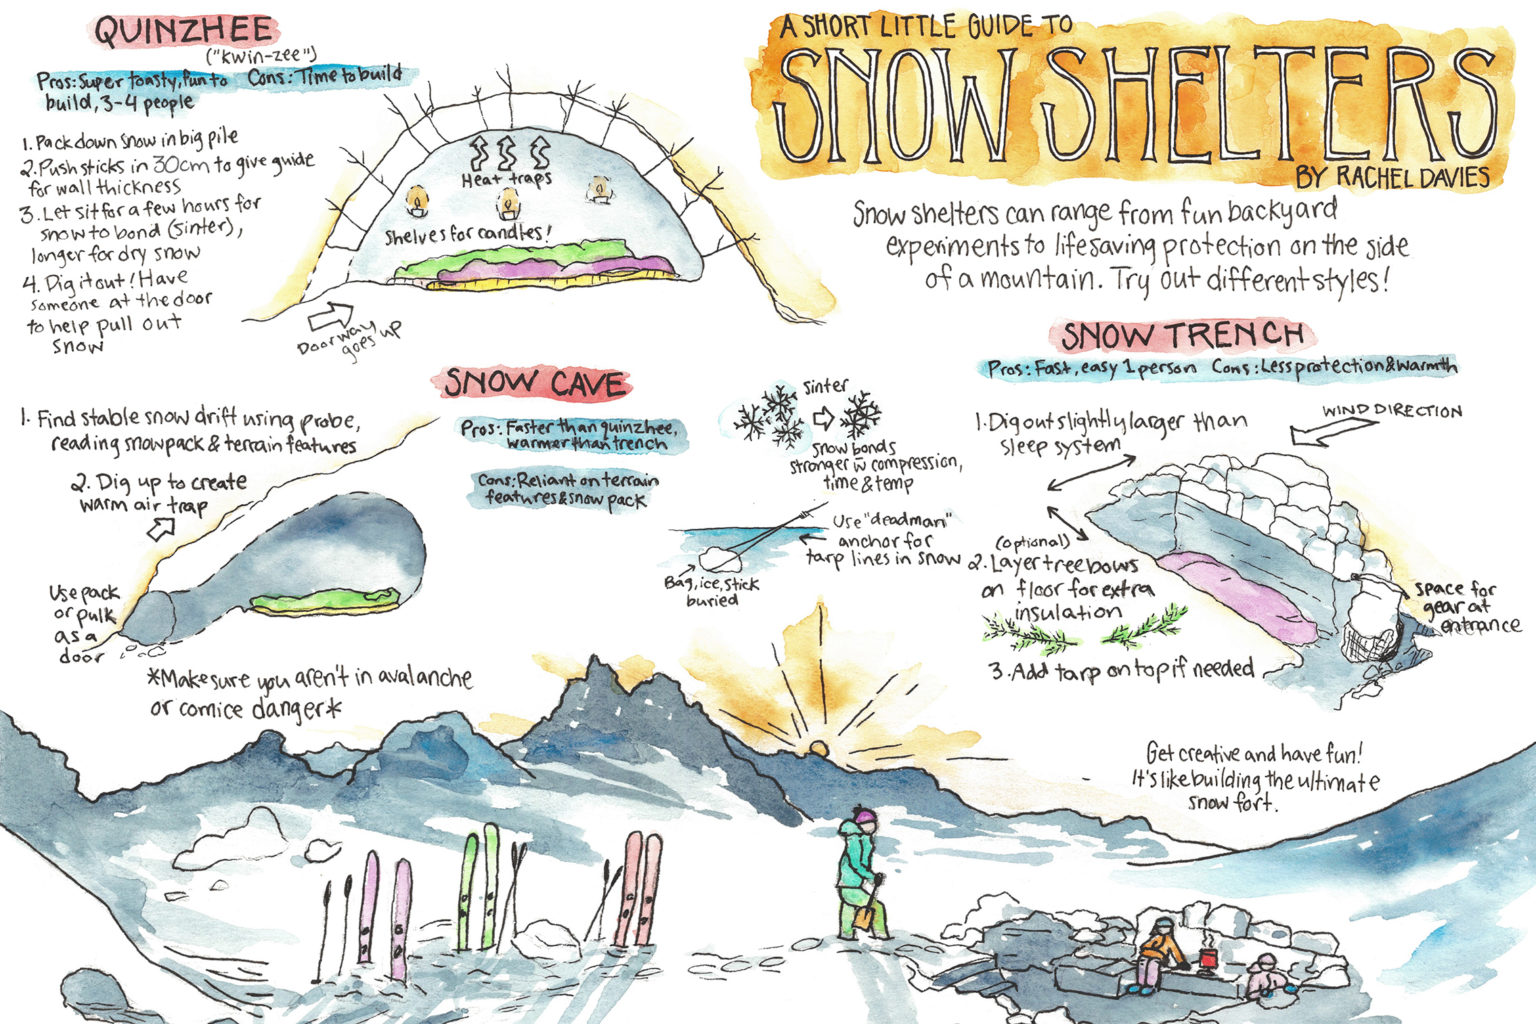 A SHORT LITTLE GUIDE TO
SNOW SHELTERS
BY RACHEL DAVIES
Snow shelters can range from fun backyard
experiments to lifesaving protection on the side
of a mountain. Try out different styles!
QUINZHEE
("kwin-zee")
Pros: Super toasty, fun to
build, 3-4 people
Cons: Time to build
1. Pack down snow in big pile
2. Push sticks in 30cm to give guide
for wall thickness
3. Let sit for a few hours for
snow to bond (sinter),
longer for dry snow
4. Dig it out! Have
someone at the door
to help pull out
snow
Heat traps
Shelves for candles!
Doorway
goes up
SNOW CAVE
Pros: Faster than quinzhee,
warmer than trench
Cons: Reliant on terrain
features & snow pack
1. Find stable snow drift using probe,
reading snowpack & terrain features
2. Dig up to create
warm air trap
Use pack
or pulk
as a
door
*Make sure you aren't in avalanche
or cornice danger*
Sinter
Snow bonds
stronger w compression,
time & temp
Use "deadman"
anchor for
tarp lines in snow
Bag, ice, stick
buried
SNOW TRENCH
Pros: Fast, easy 1 person
Cons: Less protection & warmth
1. Dig out slightly larger than
sleep system
WIND DIRECTION
(optional)
2. Layer tree bows
on floor for extra
insulation
3. Add tarp on top if needed
Space for
gear at
entrance
Get creative and have fun!
It's like building the ultimate
snow fort.